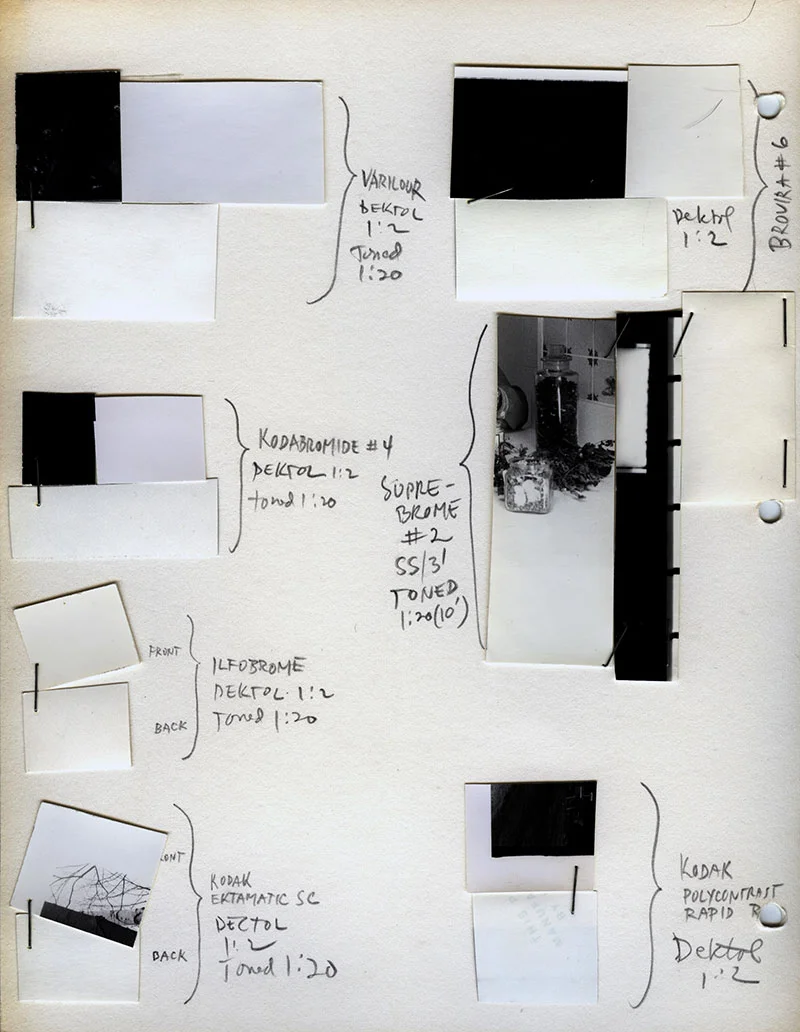 VARILOUR
DEKTOL
1:2
Toned
1:20
Dektol
1:2
BROVIRA #6
KODABROMIDE #4
DEKTOL 1:2
toned 1:20
SUPRE-
BROME
#2
SS/3'
TONED
1:20(10')
FRONT
BACK
ILFOBROME
DEKTOL. 1:2
Toned 1:20
BACK
KODAK
EKTAMATIC SC
DECTOL
1:2
Toned 1:20
KODAK
POLYCONTRAST
RAPID
Dektol
1:2